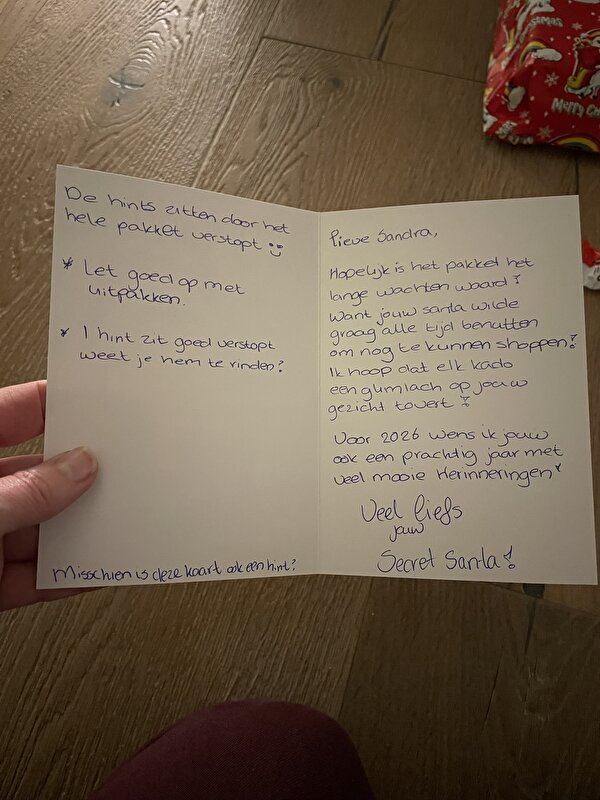 De hints zitten door het
hele pakket verstopt :)
* Let goed op met
uitpakken.
* 1 hint zit goed verstopt
weet je hem te vinden?
Misschien is deze kaart ook een hint?
Lieve Sandra,
Hopelijk is het pakket het
lange wachten waard?
Want jouw santa wilde
graag alle tijd benutten
om nog te kunnen shoppen!
Ik hoop dat elk kado
een glimlach op jouw
gezicht tovert!
Voor 2026 wens ik jouw
ook een prachtig jaar met
veel mooie Herinneringen
Veel liefs
jouw
Secret Santa!
Merry